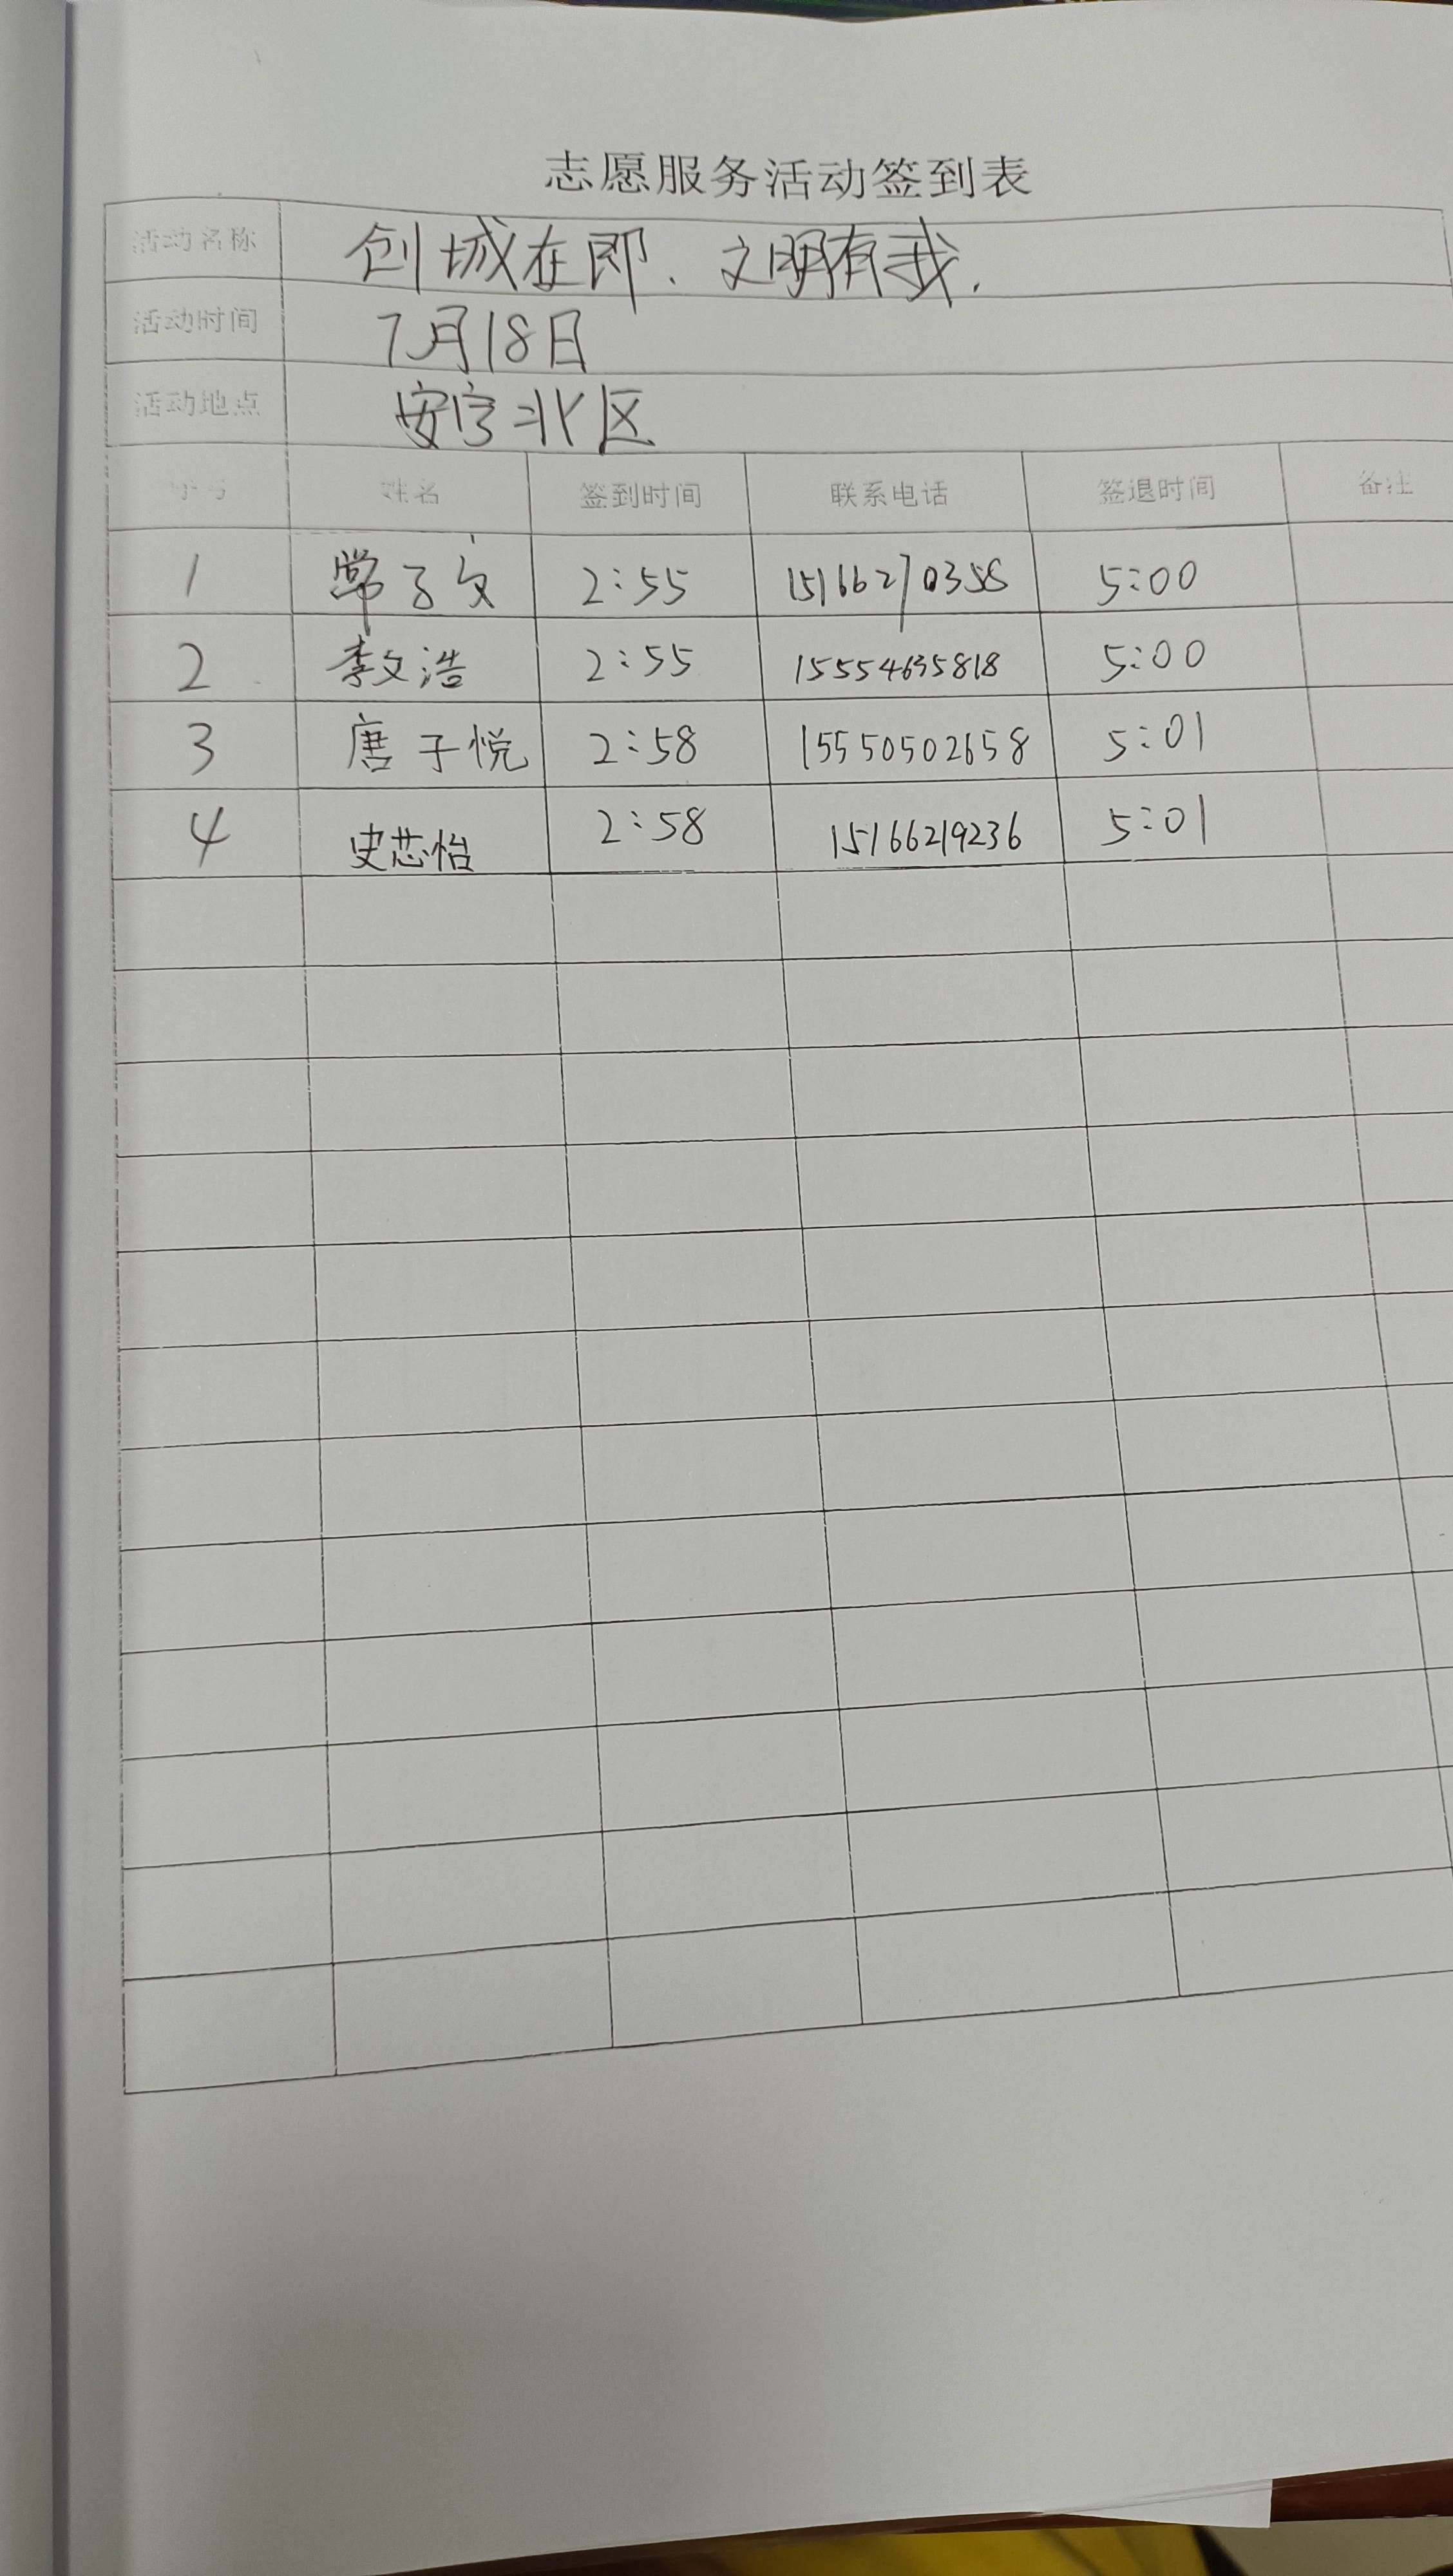 志愿服务活动签到表
活动名称 创城在即、文明有我.
活动时间 7月18日
活动地点 安宁北区
序号 姓名 签到时间 联系电话 签退时间 备注
1 常子文 2:55 15166270358 5:00
2 李文浩 2:55 15554635818 5:00
3 唐子悦 2:58 15550502658 5:01
4 史芯怡 2:58 15166219236 5:01